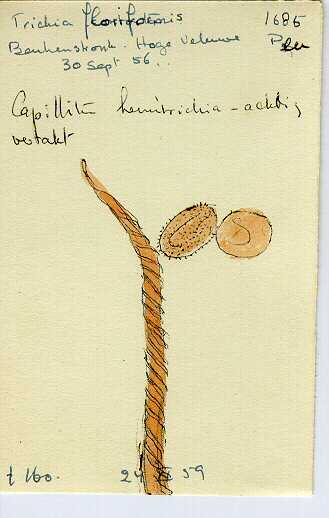 Trichia floriformis 1685
Beukenstronk. Hoge Veluwe
30 Sept 56..
Capillitium hemitrichia-achtig
vertakt
t 160. 24 XI 59